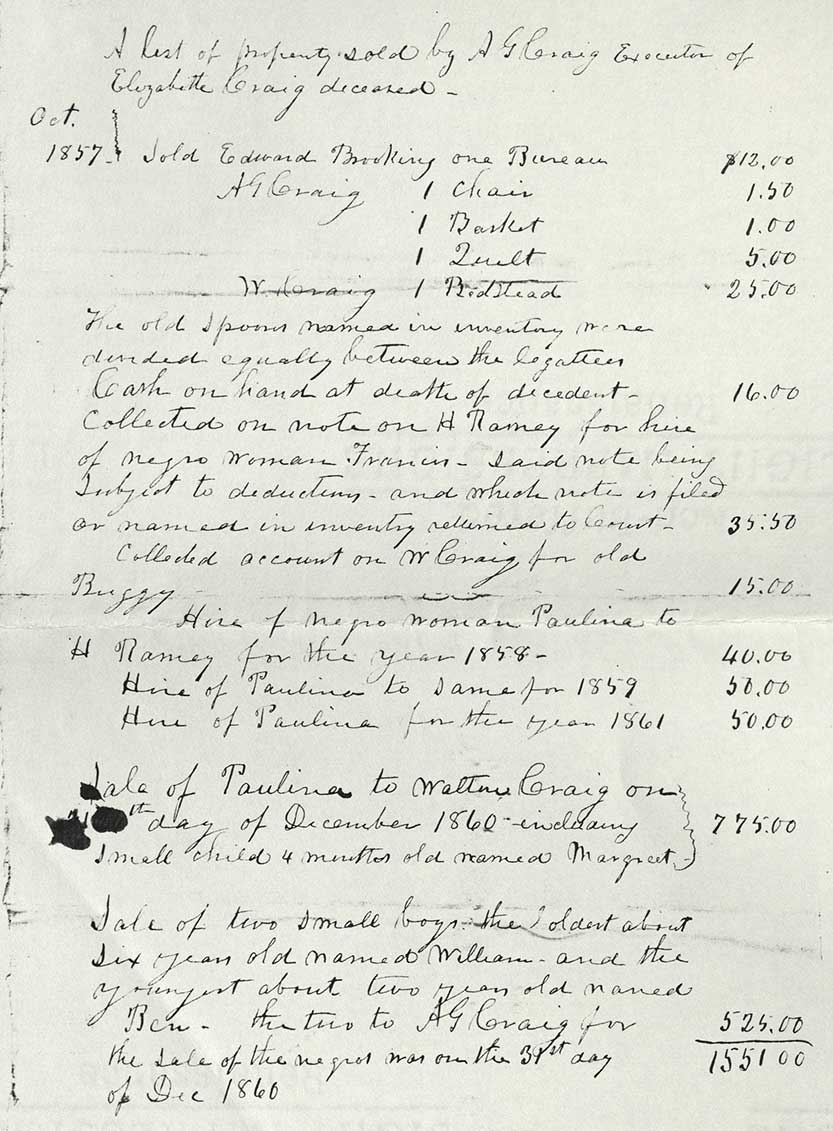 A List of property sold by A G Craig Executor of
Elizabeth Craig deceased -
Oct.
1857. Sold Edward Brooking one Bureau $12.00
A G Craig 1 Chair 1.50
1 Basket 1.00
1 Quilt 5.00
W. Craig 1 Bedstead 25.00
The old spoons named in inventory were
divided equally between the legattees
Cash on hand at death of decedent - 16.00
Collected on note on H Ramey for hire
of negro woman Francis - said note being
subject to deductions - and which note is filed
or named in inventory returned to Court - 35.50
Collected account on W Craig for old
Buggy 15.00
Hire of negro woman Paulina to
H Ramey for the year 1858 - 40.00
Hire of Paulina to same for 1859 50.00
Hire of Paulina for the year 1861 50.00
Sale of Paulina to Walton Craig on
th day of December 1860 - including 775.00
small child 4 months old named Margreet -
Sale of two small boys. the oldest about
six years old named William - and the
youngest about two years old named
Ben - the two to A G Craig for 525.00
the sale of the negros was on the 31st day 1551 00
of Dec 1860